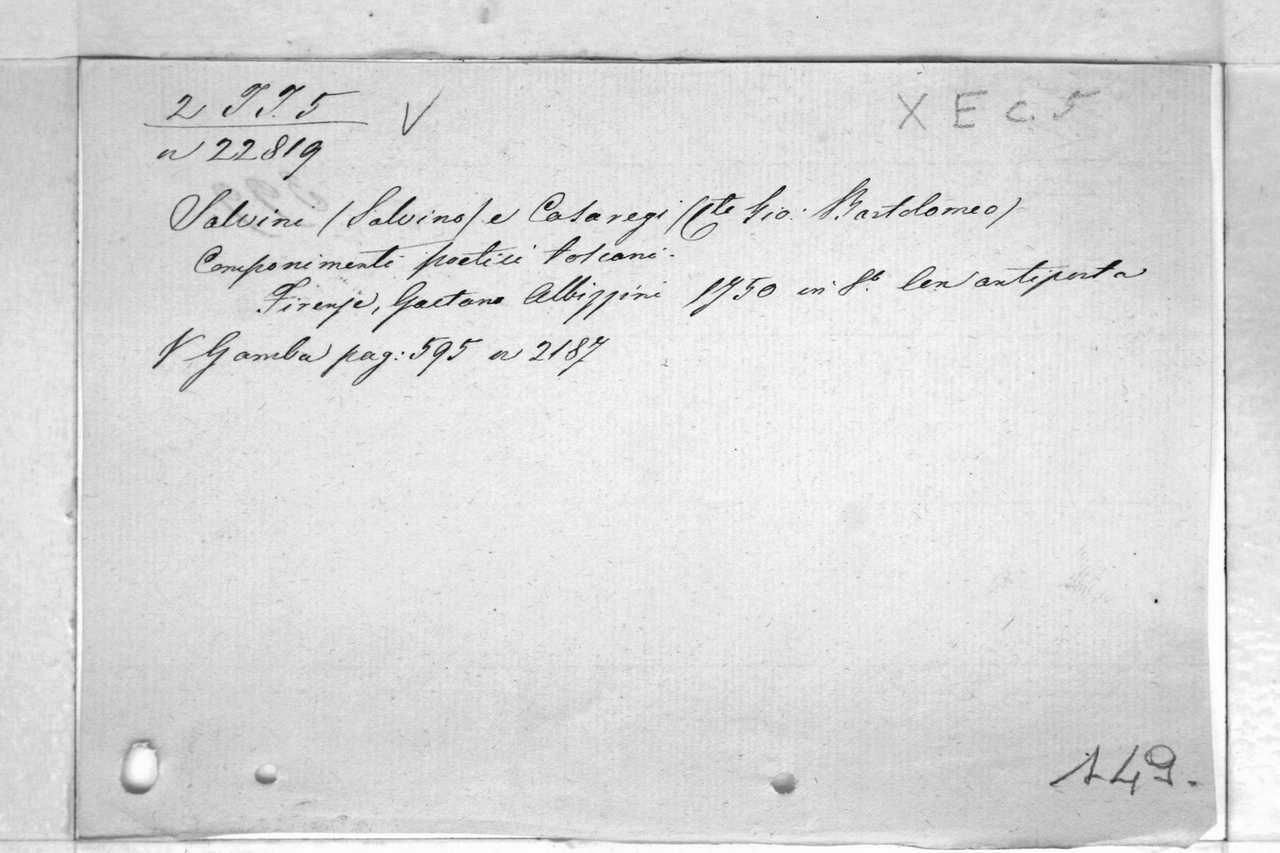 2 TT. 5 V X E c. 5
n 22819
Salvini (Salvino) e Casaregi (Cte Gio: Bartolomeo)
Componimenti poetici toscani.
Firenze, Gaetano Albizzini 1750 in 8.° Con antiporta
V Gamba pag: 595 n 2187
149.